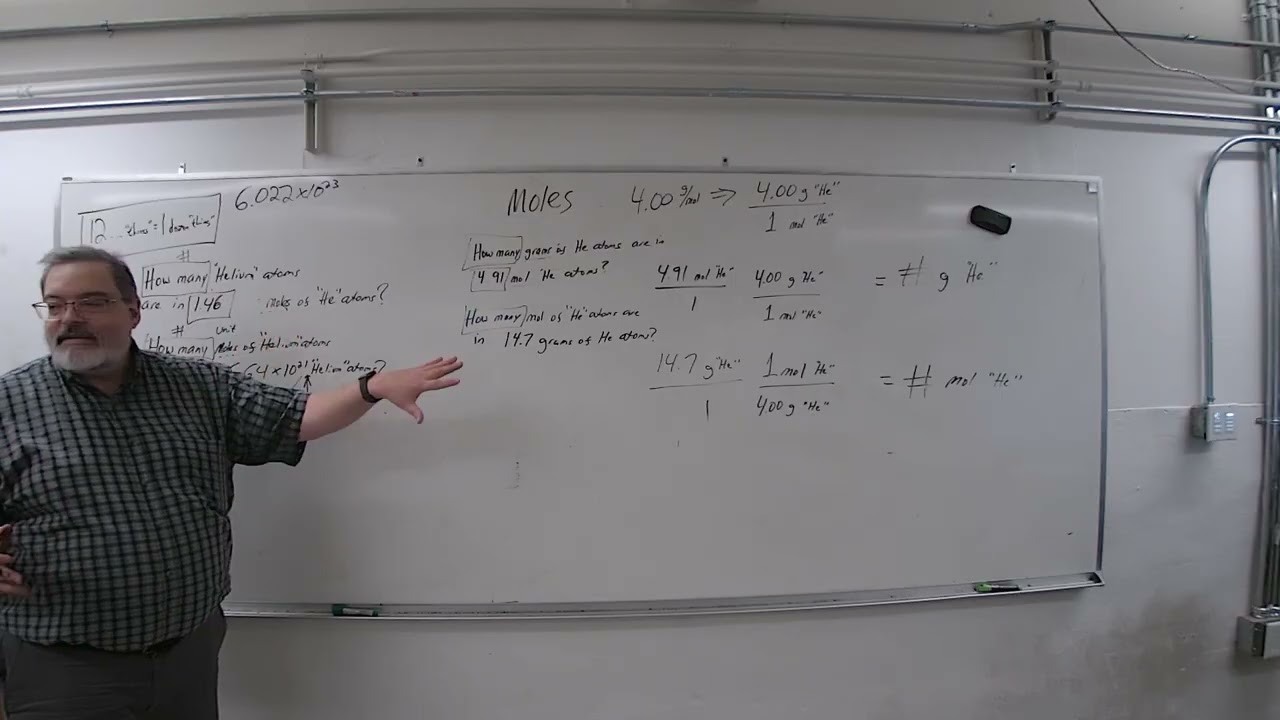 6.022×10²³
12... "things" = 1 dozen "things"
#
How many "Helium" atoms
are in 146 moles of "He" atoms?
# Unit
How many moles of "Helium" atoms
64 × 10²¹ "Helium" atoms?
Moles
4.00 g/mol ⇒ 4.00 g "He"
1 mol "He"
How many grams of He atoms are in
4.91 mol He atoms?
4.91 mol "He" 4.00 g "He" = # g "He"
1 1 mol "He"
How many mol of "He" atoms are
in 14.7 grams of He atoms?
14.7 g "He" 1 mol "He" = # mol "He"
1 4.00 g "He"